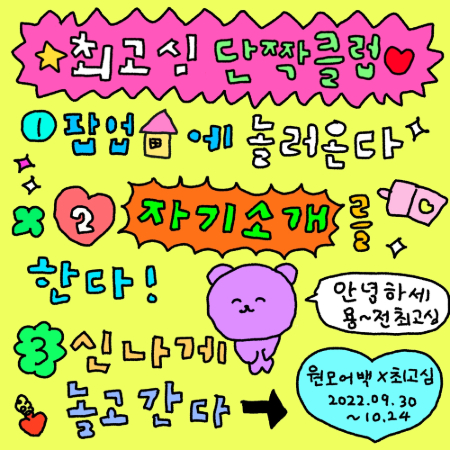 최고심 단짝클럽
1 팝업 에 놀러온다
2 자기소개를
한다!
안녕하세
용~전최고심
3 신나게
놀고간다
원모어백X최고심
2022.09.30
~10.24